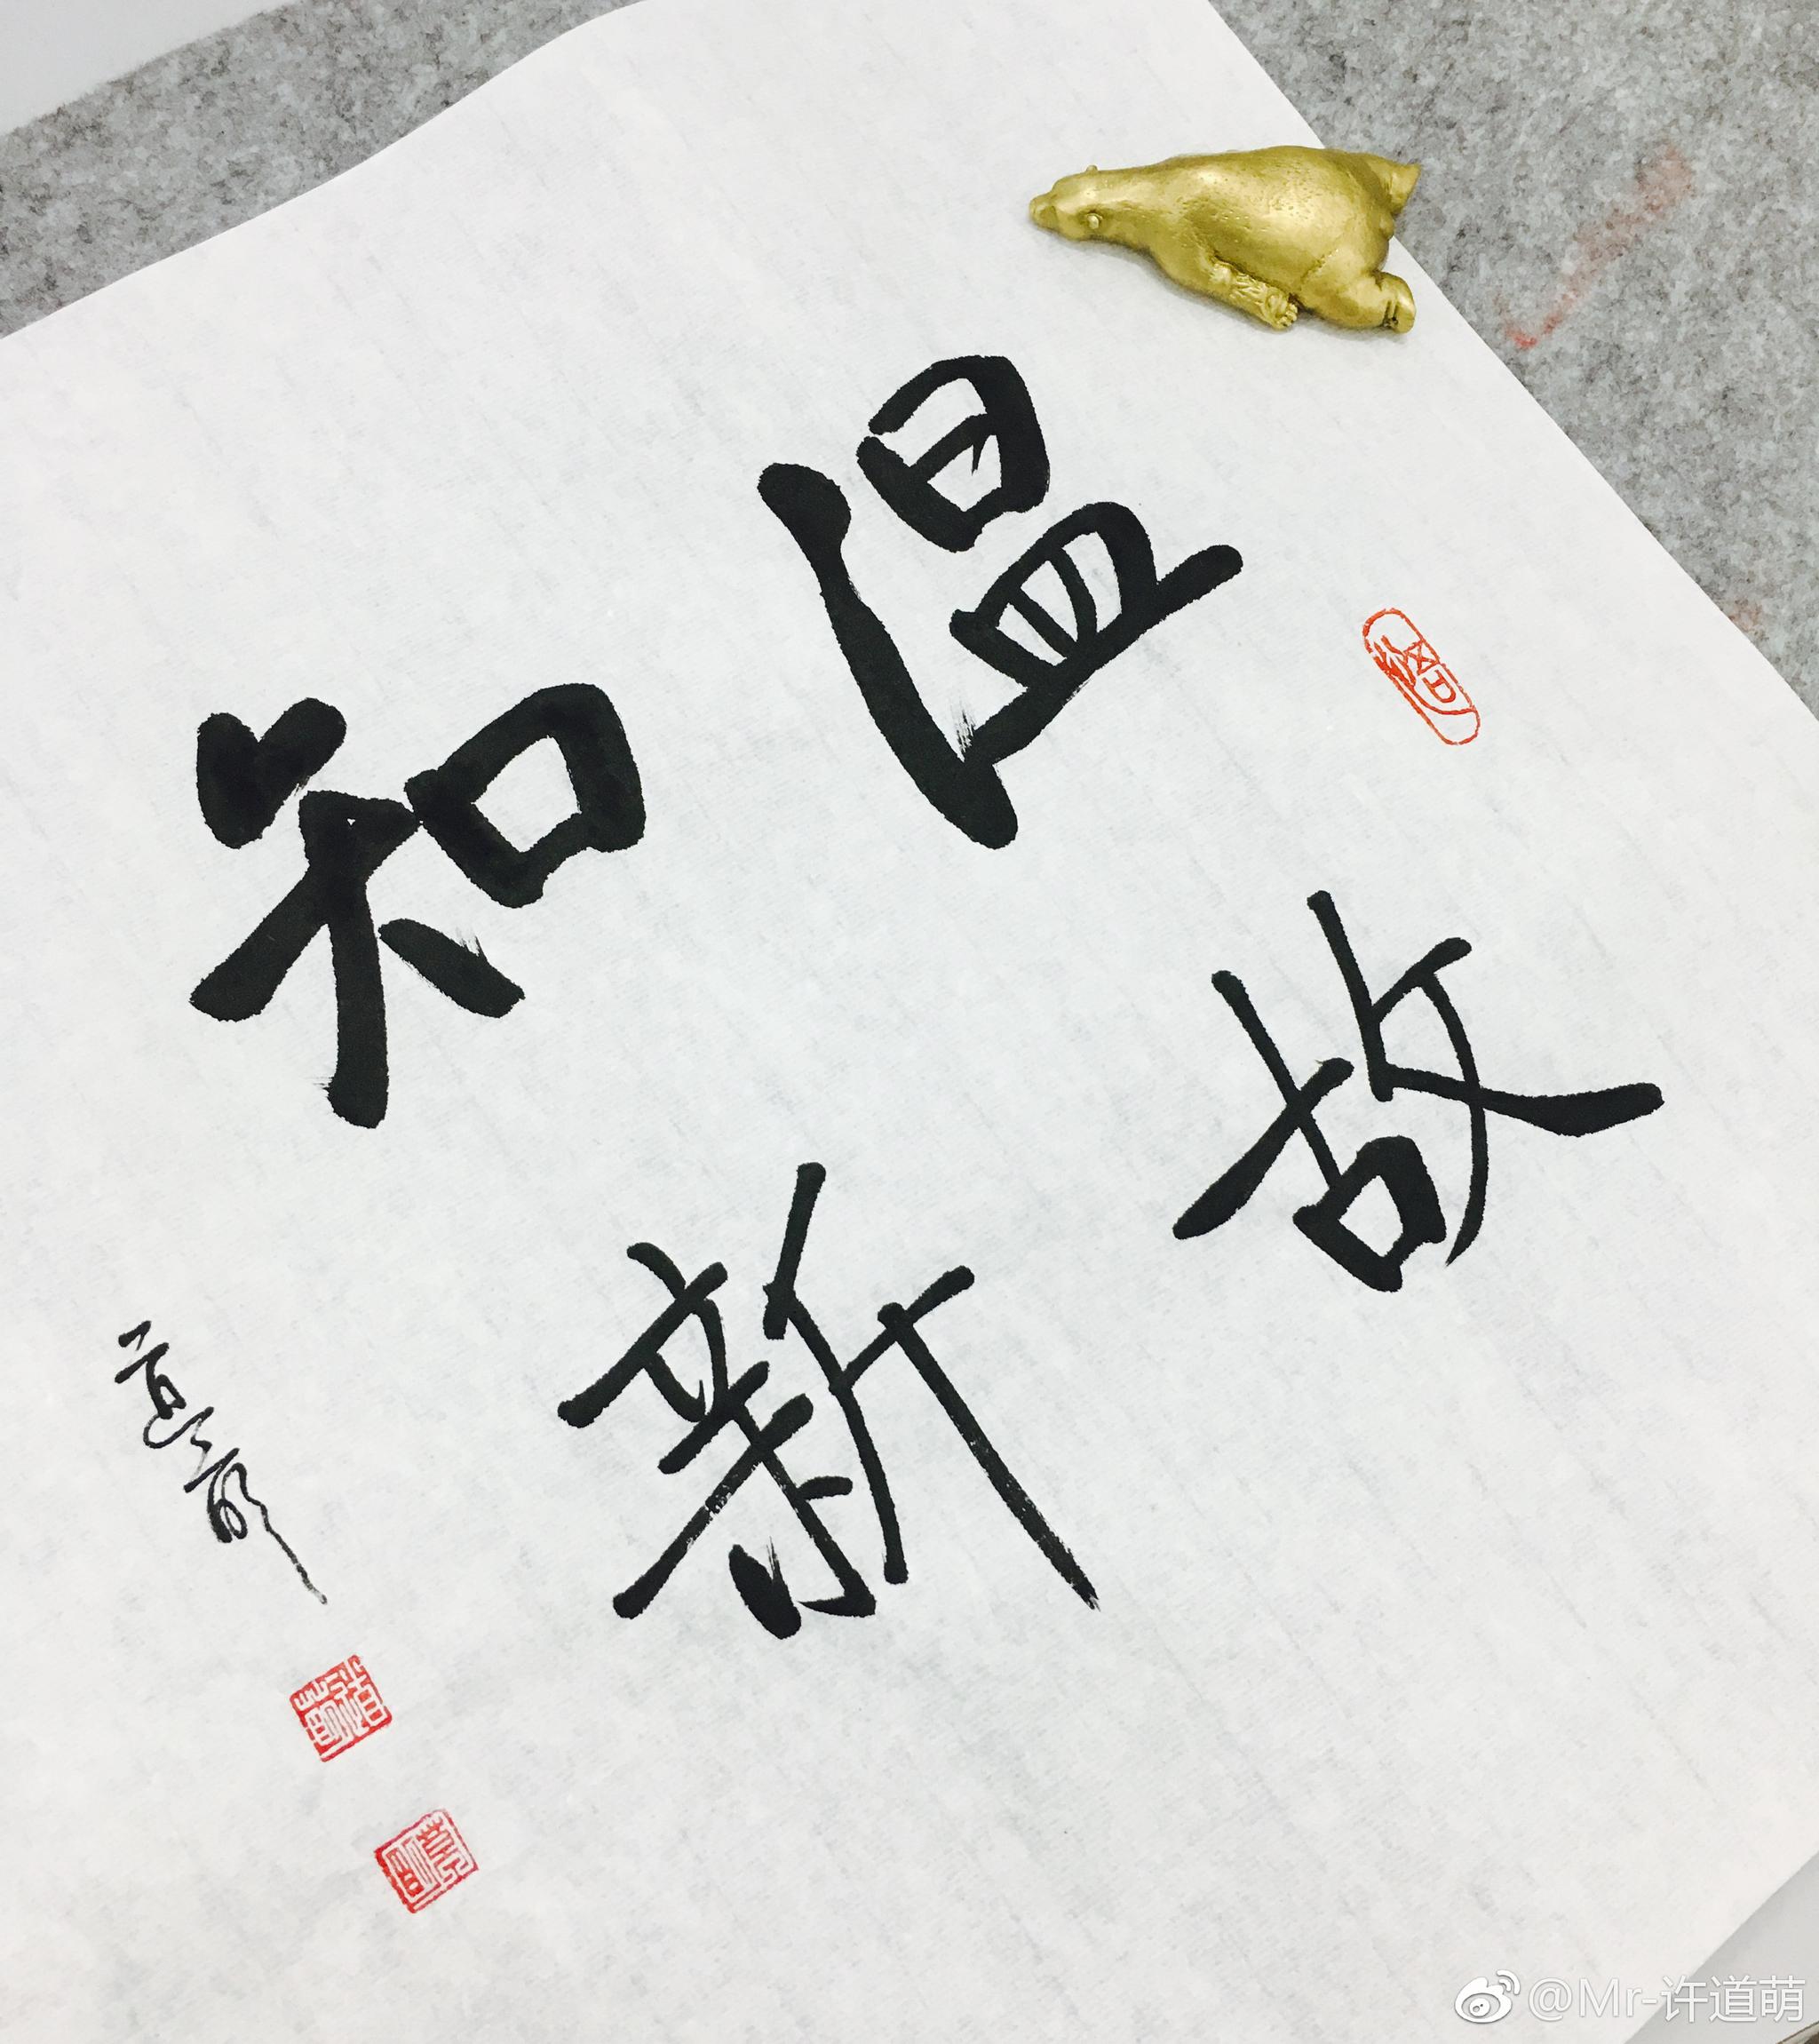 温故
知新
道萌
@Mr-许道萌